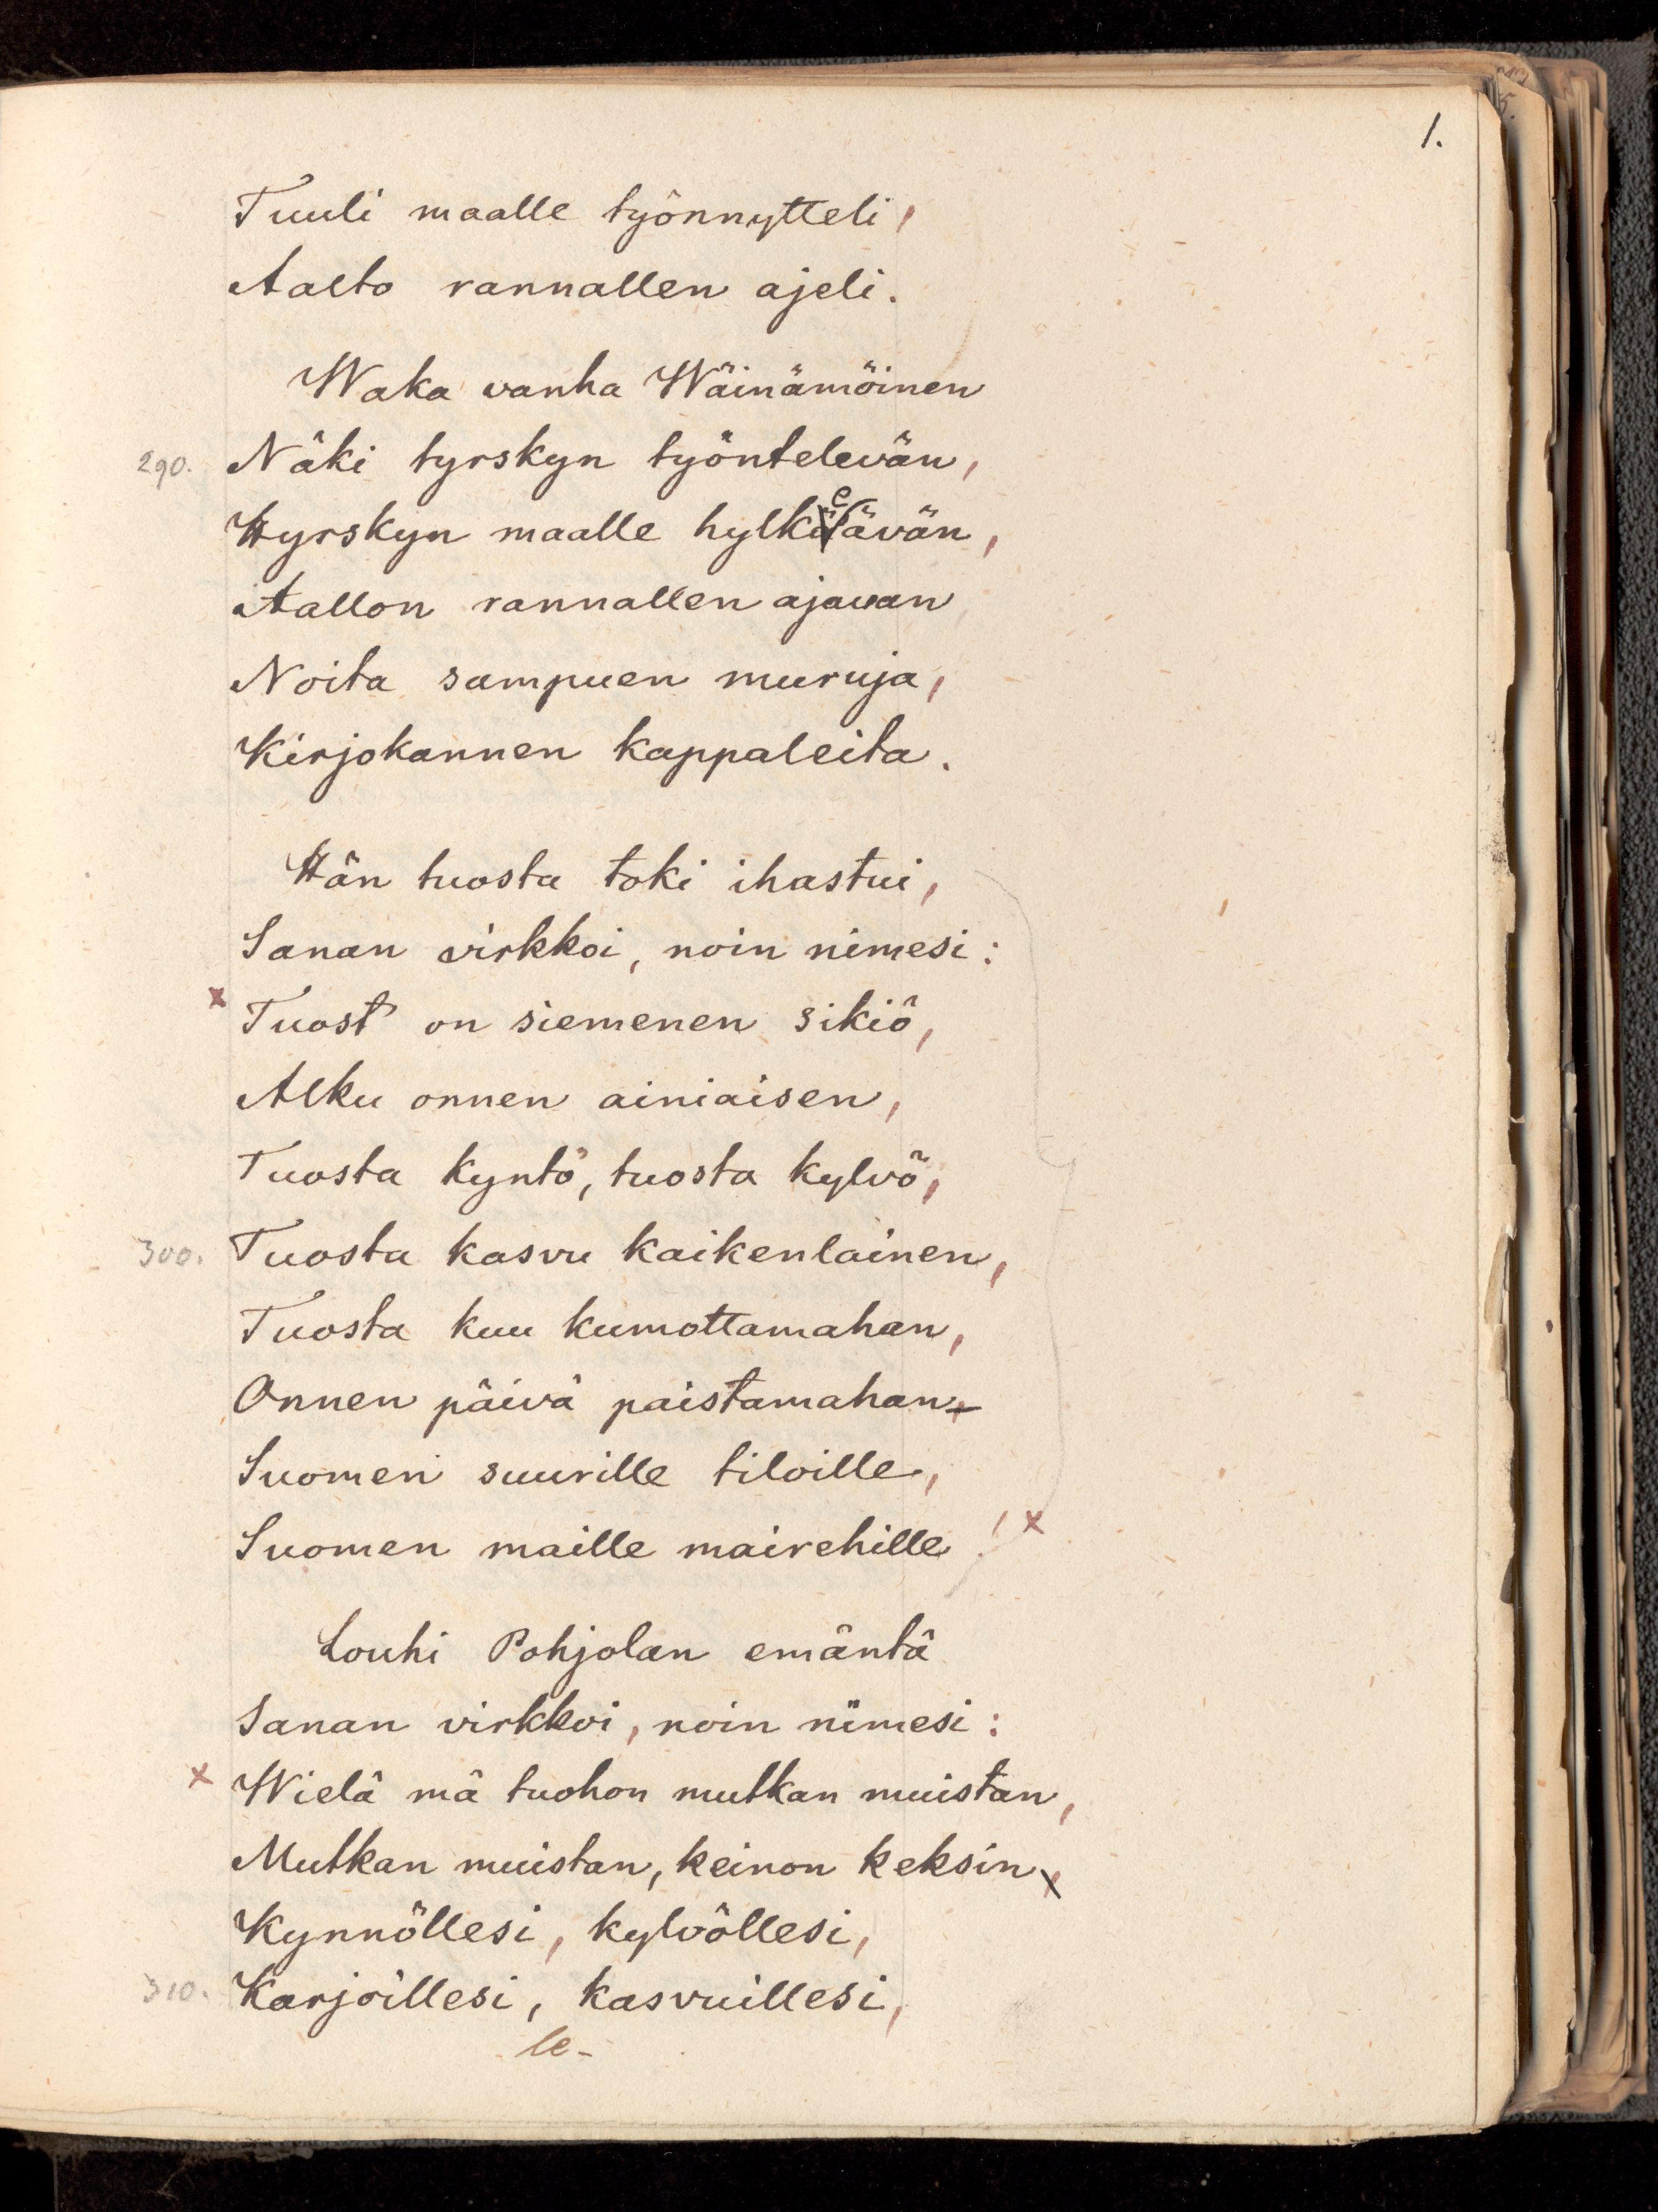 1.
Tuuli maalle työnnytteli,
Aalto rannallen ajeli.
Waka vanha Wäinämöinen
290. Näki tyrskyn työntelevän,
Hyrskyn maalle hylkeävän,
Aallon rannallen ajavan
Noita sampuen muruja,
Kirjokannen kappaleita.
Hän tuosta toki ihastui,
Sanan virkkoi, noin nimesi:
x Tuost' on siemenen sikiö,
Alku onnen ainiaisen,
Tuosta kyntö, tuosta kylvö,
300. Tuosta kasvu kaikenlainen,
Tuosta kuu kumottamahan,
Onnen päivä paistamahan
Suomen suurille tiloille,
Suomen maille mairehille! x
Louhi Pohjolan emäntä
Sanan virkkoi, noin nimesi:
x Wielä mä tuohon mutkan muistan,
Mutkan muistan, keinon keksin
Kynnöllesi, kylvöllesi,
310. Karjoillesi, kasvuillesi,
le-